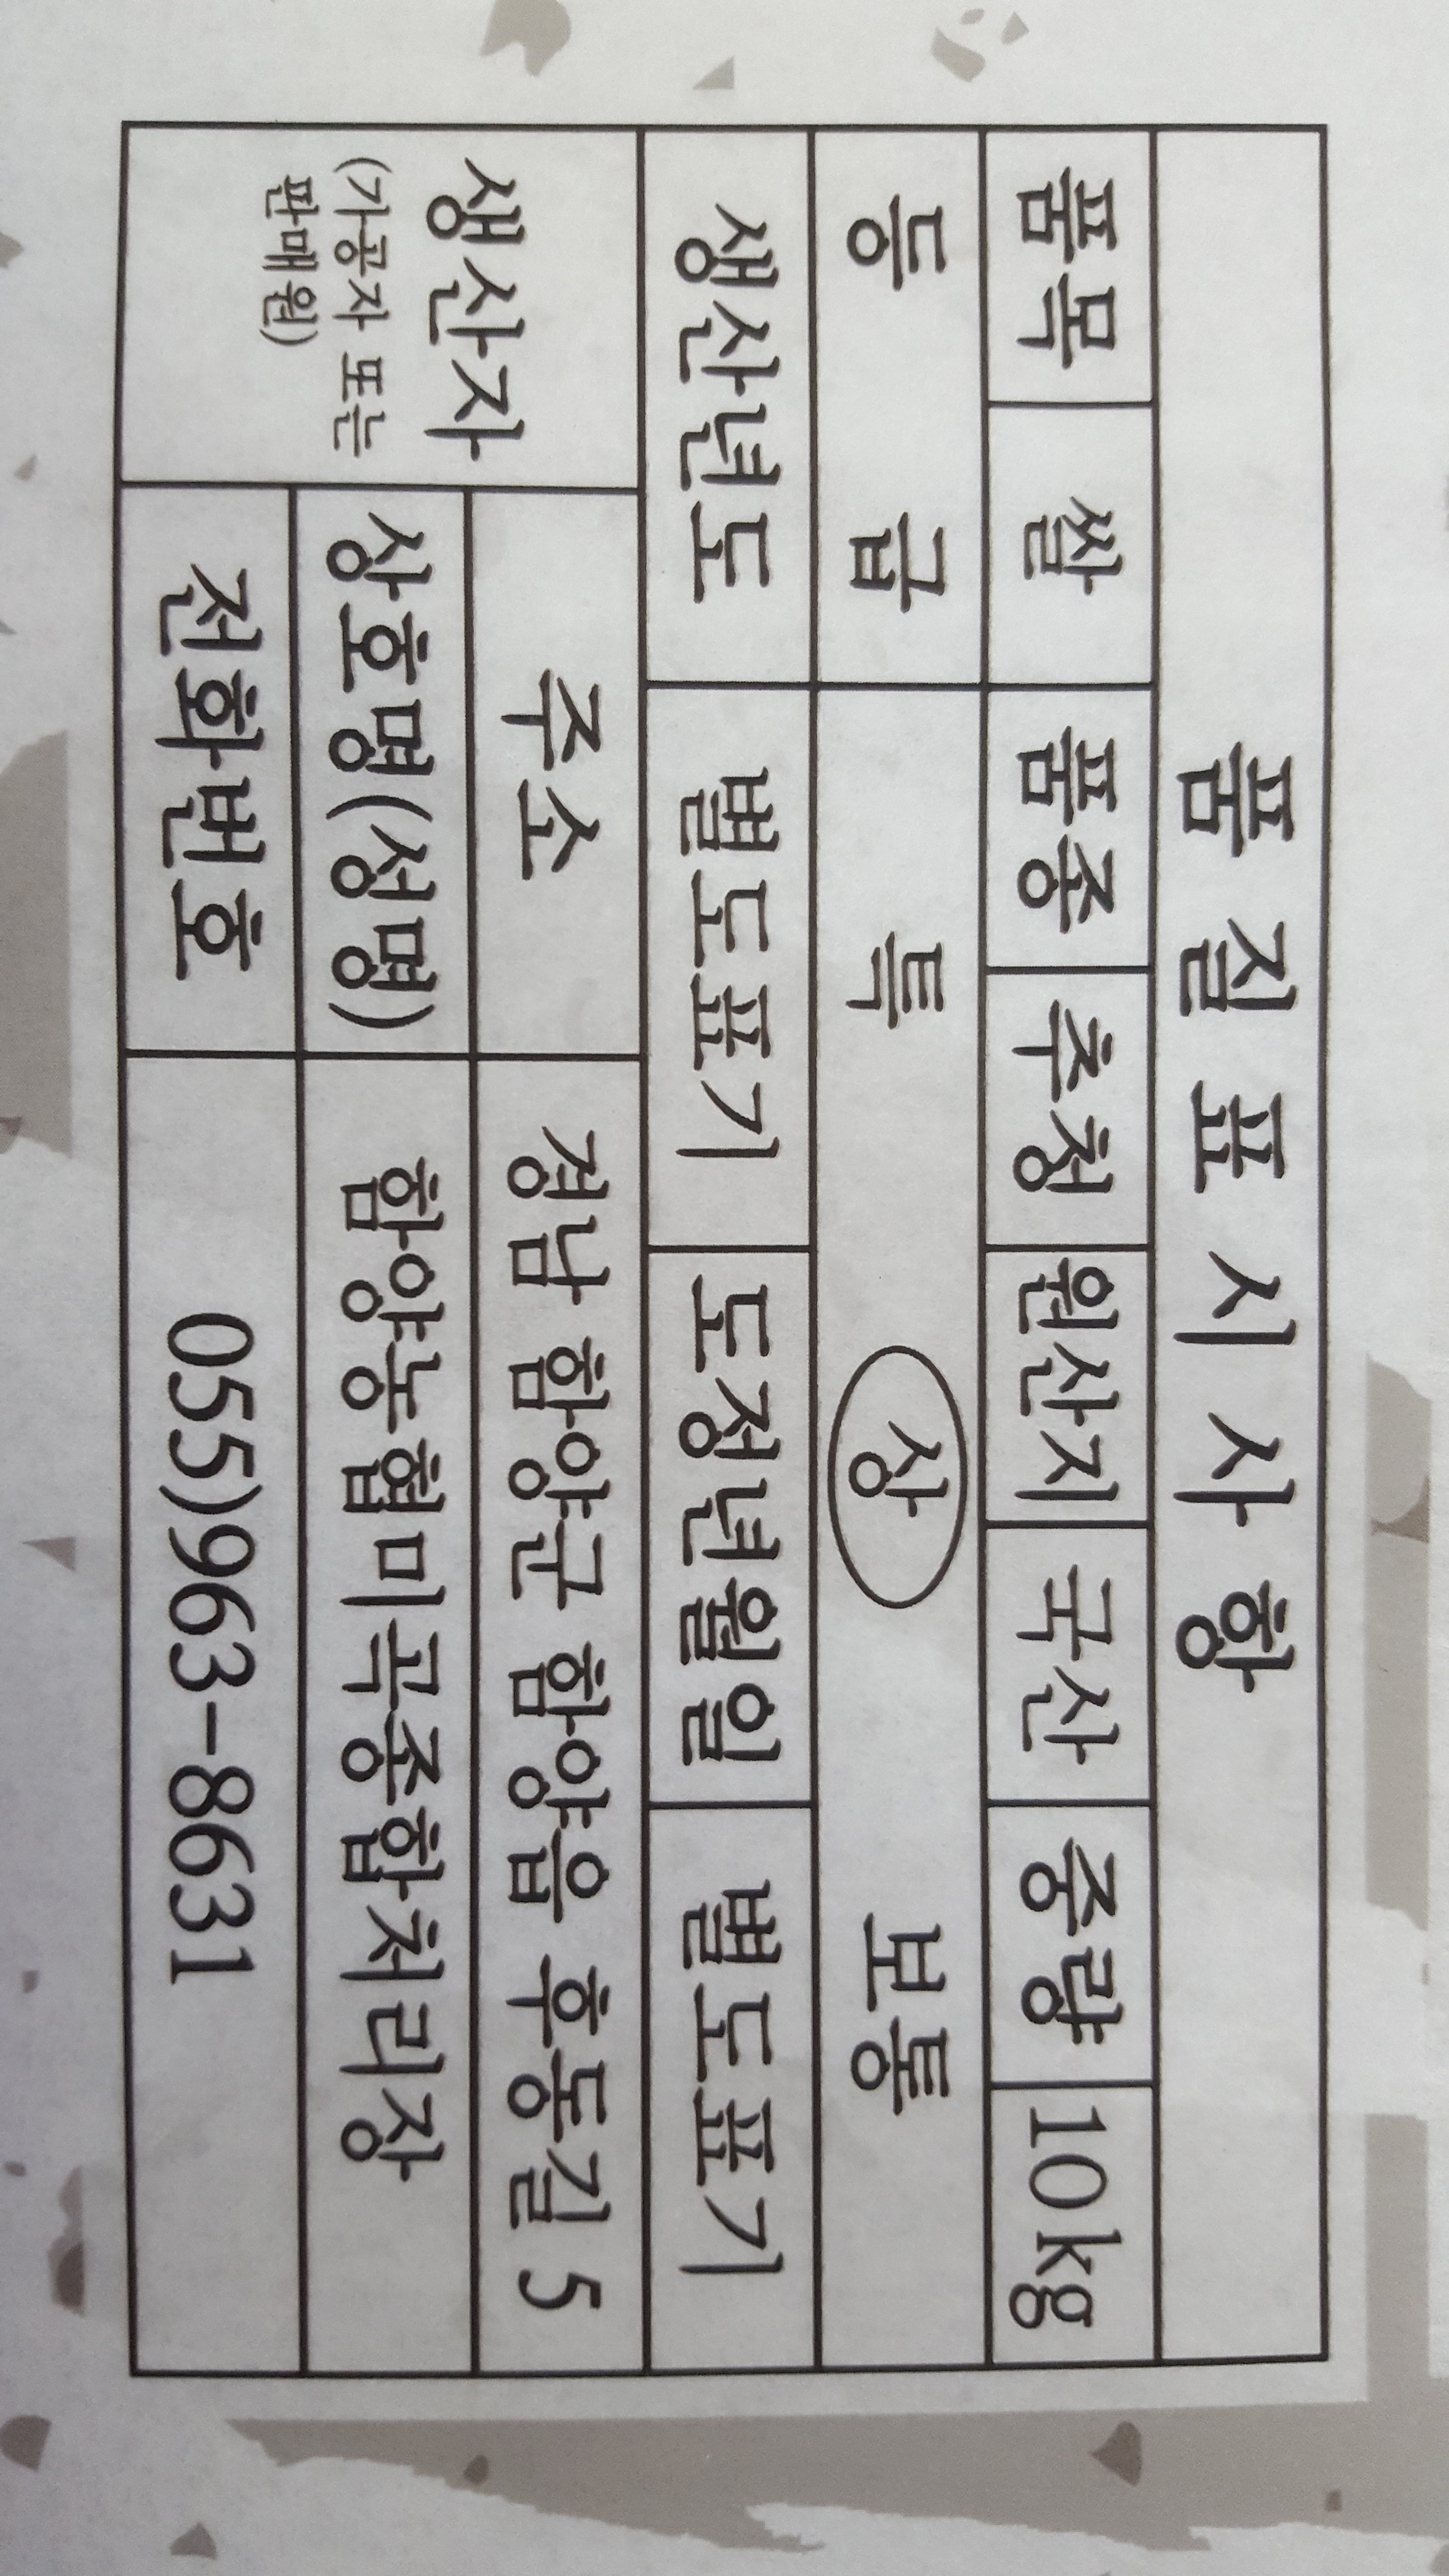 품 질 표 시 사 항
품목 쌀 품종 추청 원산지 국산 중량 10kg
등 급 특 상 보통
생산년도 별도표기 도정년월일 별도표기
생산자
(가공자 또는
판매원)
주소 경남 함양군 함양읍 후동길 5
상호명(성명) 함양농협미곡종합처리장
전화번호 055)963-8631